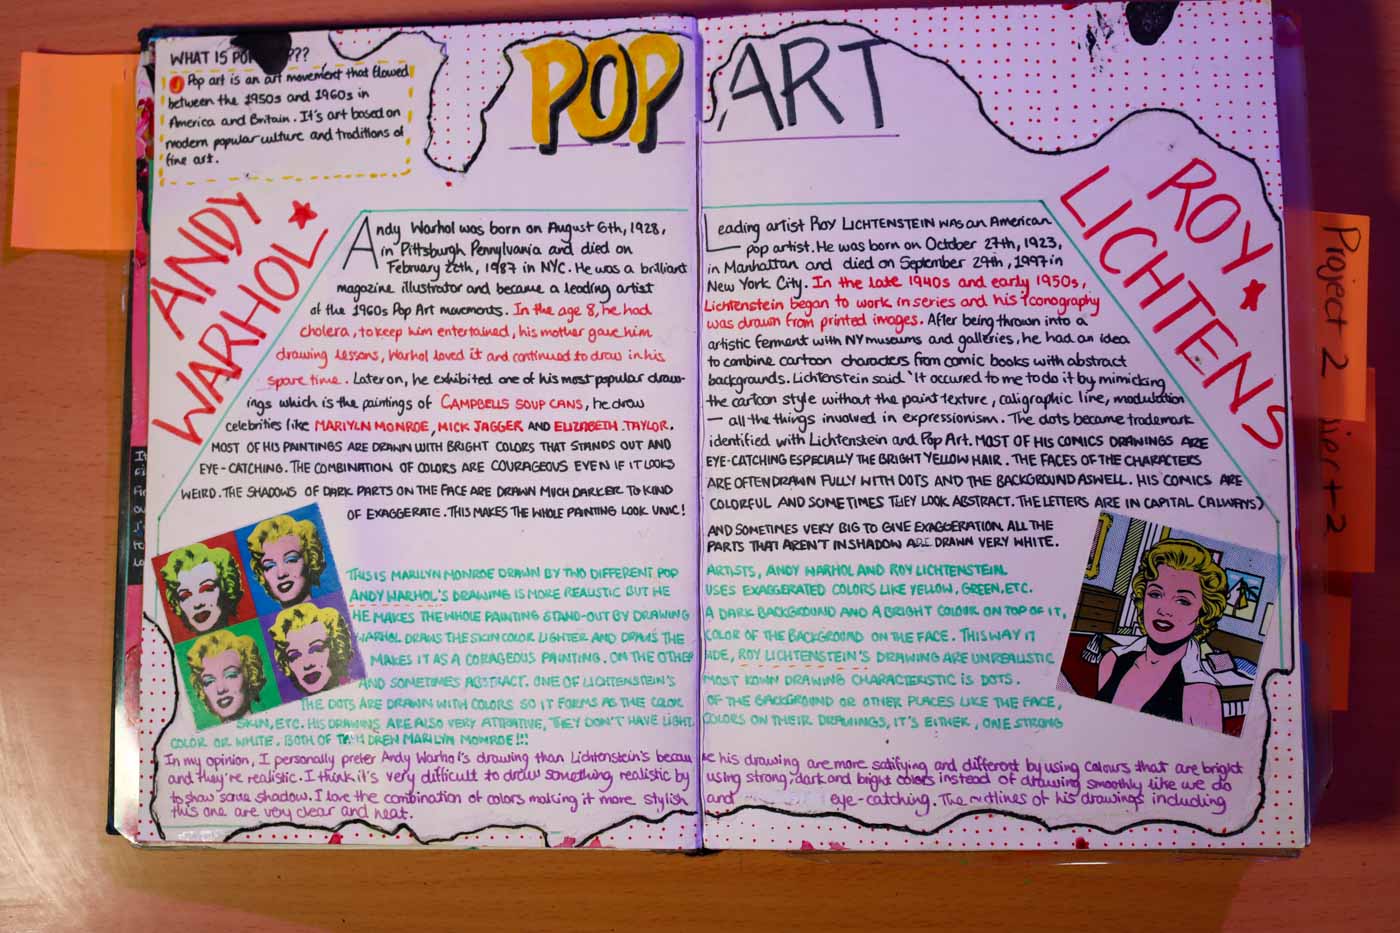 WHAT IS POP ???
Pop art is an art movement that flowed
between the 1950s and 1960s in
America and Britain. It's art based on
modern popular culture and traditions of
fine art.
POP ART
ANDY
WARHOL
Andy Warhol was born on August 6th, 1928,
in Pittsburgh Pennylvania and died on
February 22th, 1987 in NYC. He was a brilliant
magazine illustrator and became a leading artist
of the 1960s Pop Art movements. In the age 8, he had
cholera, to keep him entertained, his mother gave him
drawing lessons, Warhol loved it and continued to draw in his
spare time. Later on, he exhibited one of his most popular draw-
ings which is the paintings of CAMPBELLS SOUP CANS, he drew
celebrities like MARIYLN MONROE, MICK JAGGER AND ELIZABETH TAYLOR.
MOST OF HIS PAINTINGS ARE DRAWN WITH BRIGHT COLORS THAT STANDS OUT AND
EYE-CATCHING. THE COMBINATION OF COLORS ARE COURAGEOUS EVEN IF IT LOOKS
WEIRD. THE SHADOWS OF DARK PARTS ON THE FACE ARE DRAWN MUCH DARKER TO KIND
OF EXAGGERATE. THIS MAKES THE WHOLE PAINTING LOOK UNIC!
ROY
LICHTENS
Leading artist ROY LICHTENSTEIN WAS AN American
pop artist. He was born on October 27th, 1923,
in Manhattan and died on September 29th, 1997 in
New York City. In the late 1940s and early 1950s,
Lichtenstein began to work in series and his iconography
was drawn from printed images. After being thrown into a
artistic ferment with NY museums and galleries, he had an idea
to combine cartoon characters from comic books with abstract
backgrounds. Lichtenstein said 'It occured to me to do it by mimicking
the cartoon style without the paint texture, caligraphic line, modulation
— all the things involved in expressionism. The dots became trademark
identified with Lichtenstein and Pop Art. MOST OF HIS COMICS DRAWINGS ARE
EYE-CATCHING ESPECIALLY THE BRIGHT YELLOW HAIR. THE FACES OF THE CHARACTERS
ARE OFTEN DRAWN FULLY WITH DOTS AND THE BACKGROUND ASWELL. HIS COMICS ARE
COLORFUL AND SOMETIMES THEY LOOK ABSTRACT. THE LETTERS ARE IN CAPITAL (ALWAYS)
AND SOMETIMES VERY BIG TO GIVE EXAGGERATION. ALL THE
PARTS THAT AREN'T IN SHADOW ARE DRAWN VERY WHITE.
THIS IS MARILYN MONROE DRAWN BY TWO DIFFERENT POP ARTISTS, ANDY WARHOL AND ROY LICHTENSTEIN.
ANDY WARHOL'S DRAWING IS MORE REALISTIC BUT HE USES EXAGGERATED COLORS LIKE YELLOW, GREEN, ETC.
HE MAKES THE WHOLE PAINTING STAND-OUT BY DRAWING A DARK BACKGROUND AND A BRIGHT COLOUR ON TOP OF IT,
WARHOL DRAWS THE SKIN COLOR LIGHTER AND DRAWS THE COLOR OF THE BACKGROUND ON THE FACE. THIS WAY IT
MAKES IT AS A CORAGEOUS PAINTING. ON THE OTHER SIDE, ROY LICHTENSTEIN'S DRAWING ARE UNREALISTIC
AND SOMETIMES ABSTRACT. ONE OF LICHTENSTEIN'S MOST KOWN DRAWING CHARACTERISTIC IS DOTS.
THE DOTS ARE DRAWN WITH COLORS SO IT FORMS AS THE COLOR OF THE BACKGROUND OR OTHER PLACES LIKE THE FACE,
SKIN, ETC. HIS DRAWINS ARE ALSO VERY ATTRATIVE, THEY DON'T HAVE LIGHT COLORS ON THEIR DRAWINGS, IT'S EITHER, ONE STRONG
COLOR OR WHITE. BOTH OF THEM DREN MARILYN MONROE!!!
In my opinion, I personally prefer Andy Warhol's drawing than Lichtenstein's because his drawing are more satifying and different by using colours that are bright
and they're realistic. I think it's very difficult to draw something realistic by using strong, dark and bright colors instead of drawing smoothly like we do
to show some shadow. I love the combination of colors making it more stylish and eye-catching. The outlines of his drawings including
this one are very clear and neat.
Project 2